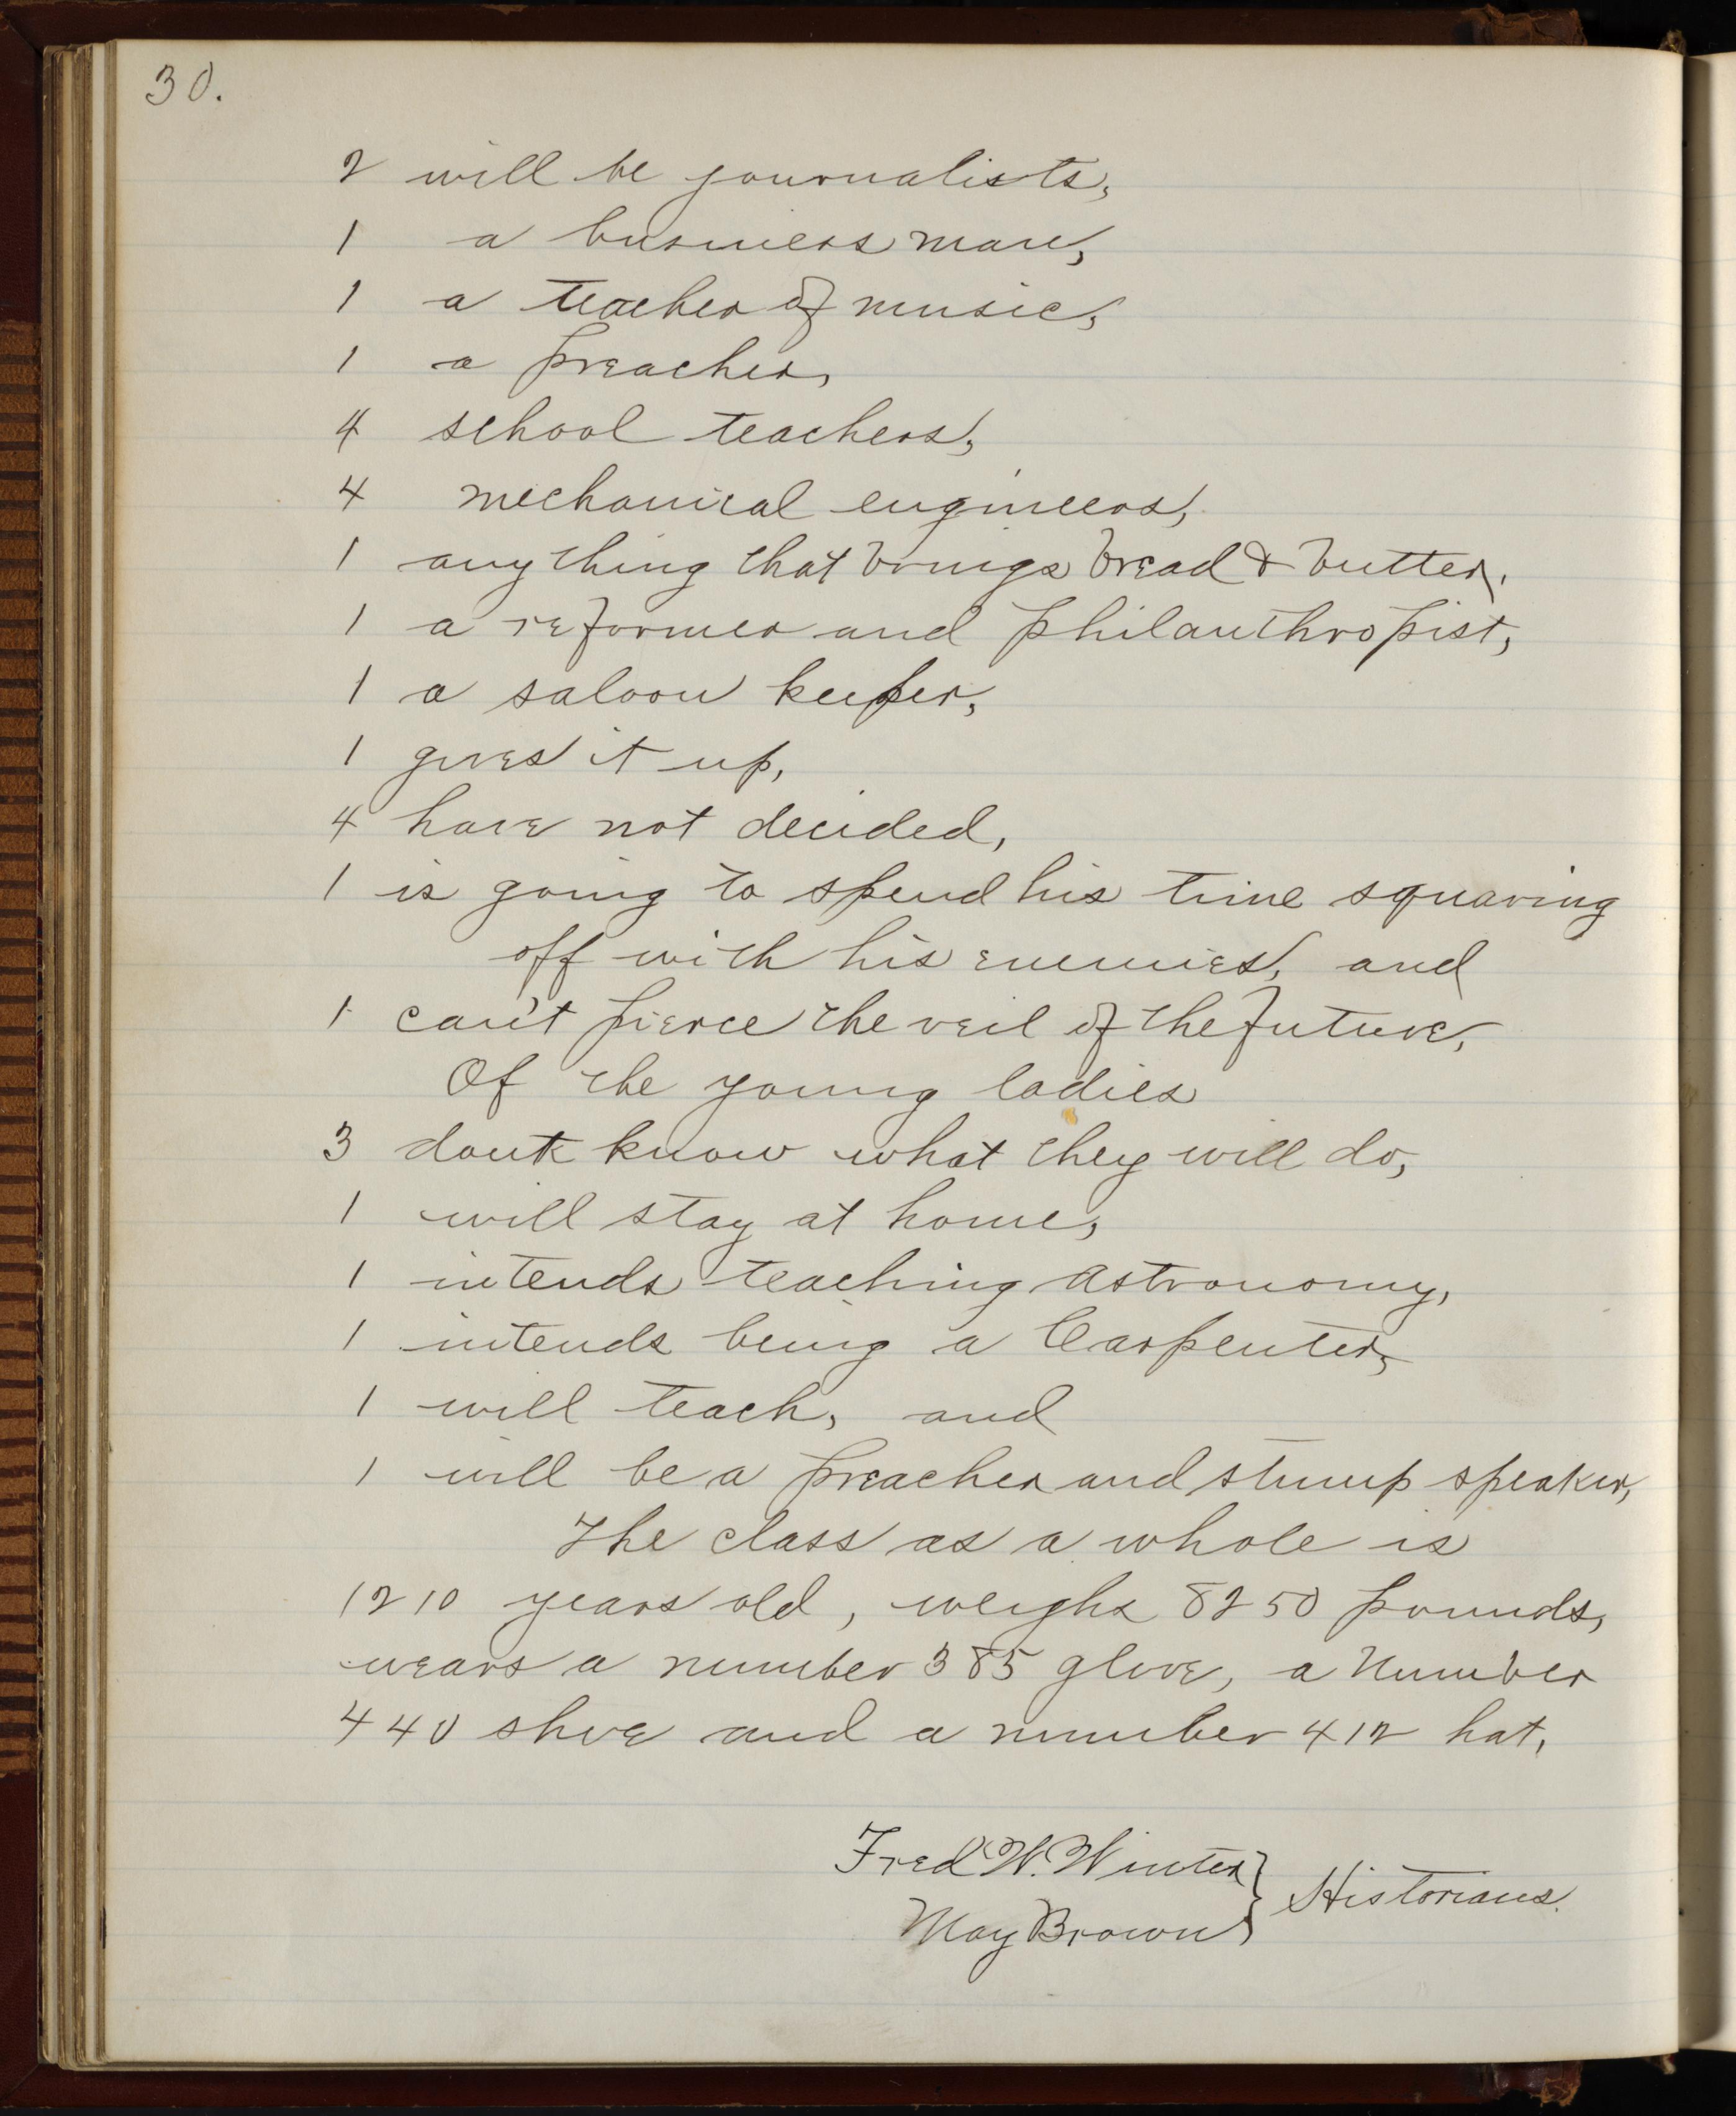 30.
2 will be journalists,
1 a business man,
1 a teacher of music,
1 a preacher,
4 school teachers,
4 mechanical engineers,
1 anything that brings bread & butter,
1 a reformer and philanthropist,
1 a saloon keeper,
1 gives it up,
4 have not decided,
1 is going to spend his time squaring
off with his enemies, and
1 can't pierce the veil of the future,
Of the young ladies
3 dont know what they will do,
1 will stay at home,
1 intends teaching Astronomy,
1 intends being a Carpenter,
1 will teach, and
1 will be a preacher and stump speaker,
The class as a whole is
1210 years old, weighs 8250 pounds,
wears a number 385 glove, a number
440 shoe and a number 412 hat,
Fred W. Winter } Historians.
May Brown